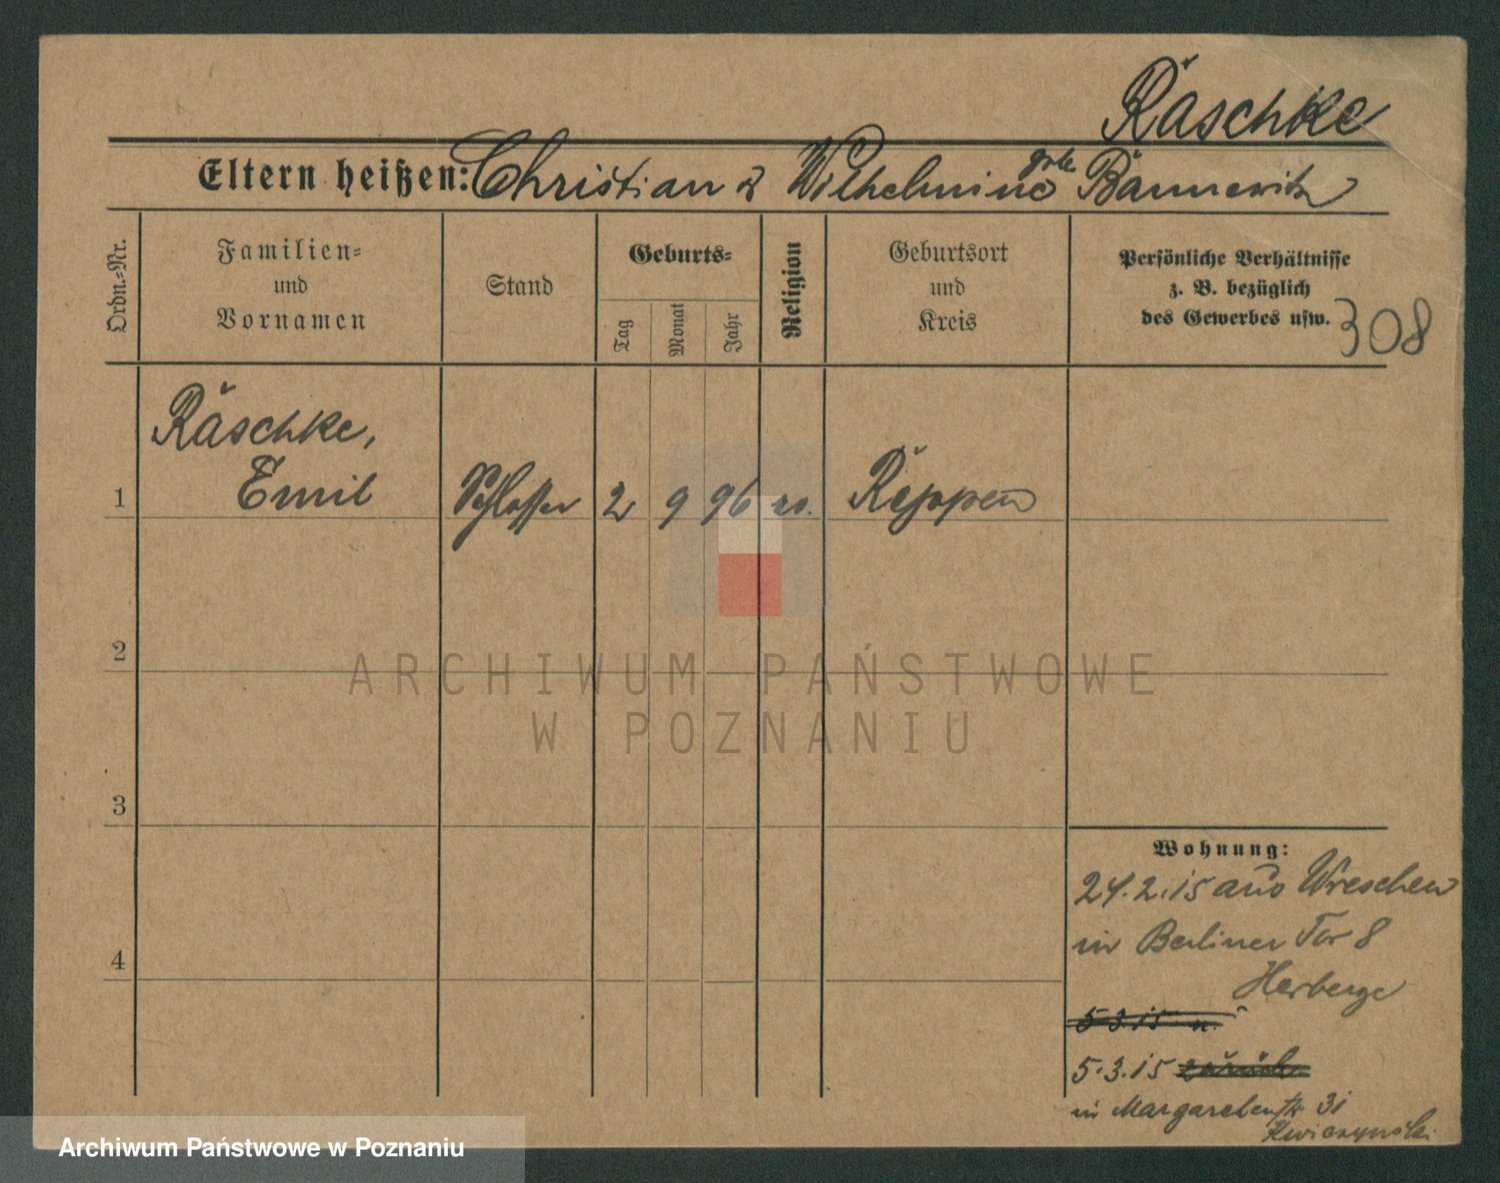 Räschke
Eltern heißen: Christian u Wilhelmine geb. Bannewitz
Ordn.-Nr.
Familien-
und
Vornamen
Stand
Geburts-
Tag
Monat
Jahr
Religion
Geburtsort
und
Kreis
Persönliche Verhältnisse
z. B. bezüglich
des Gewerbes usw.
308
Räschke,
Emil
1
Schlosser
2
9
96
Reppen
2
3
4
ARCHIWUM PAŃSTWOWE
W POZNANIU
Wohnung:
24.2.15 aus Wreschen
in Berliner Tor 8
Herberge
5.3.15 u.
5.3.15 zurück
in Margaretenstr 31
Kwiczynski
Archiwum Państwowe w Poznaniu